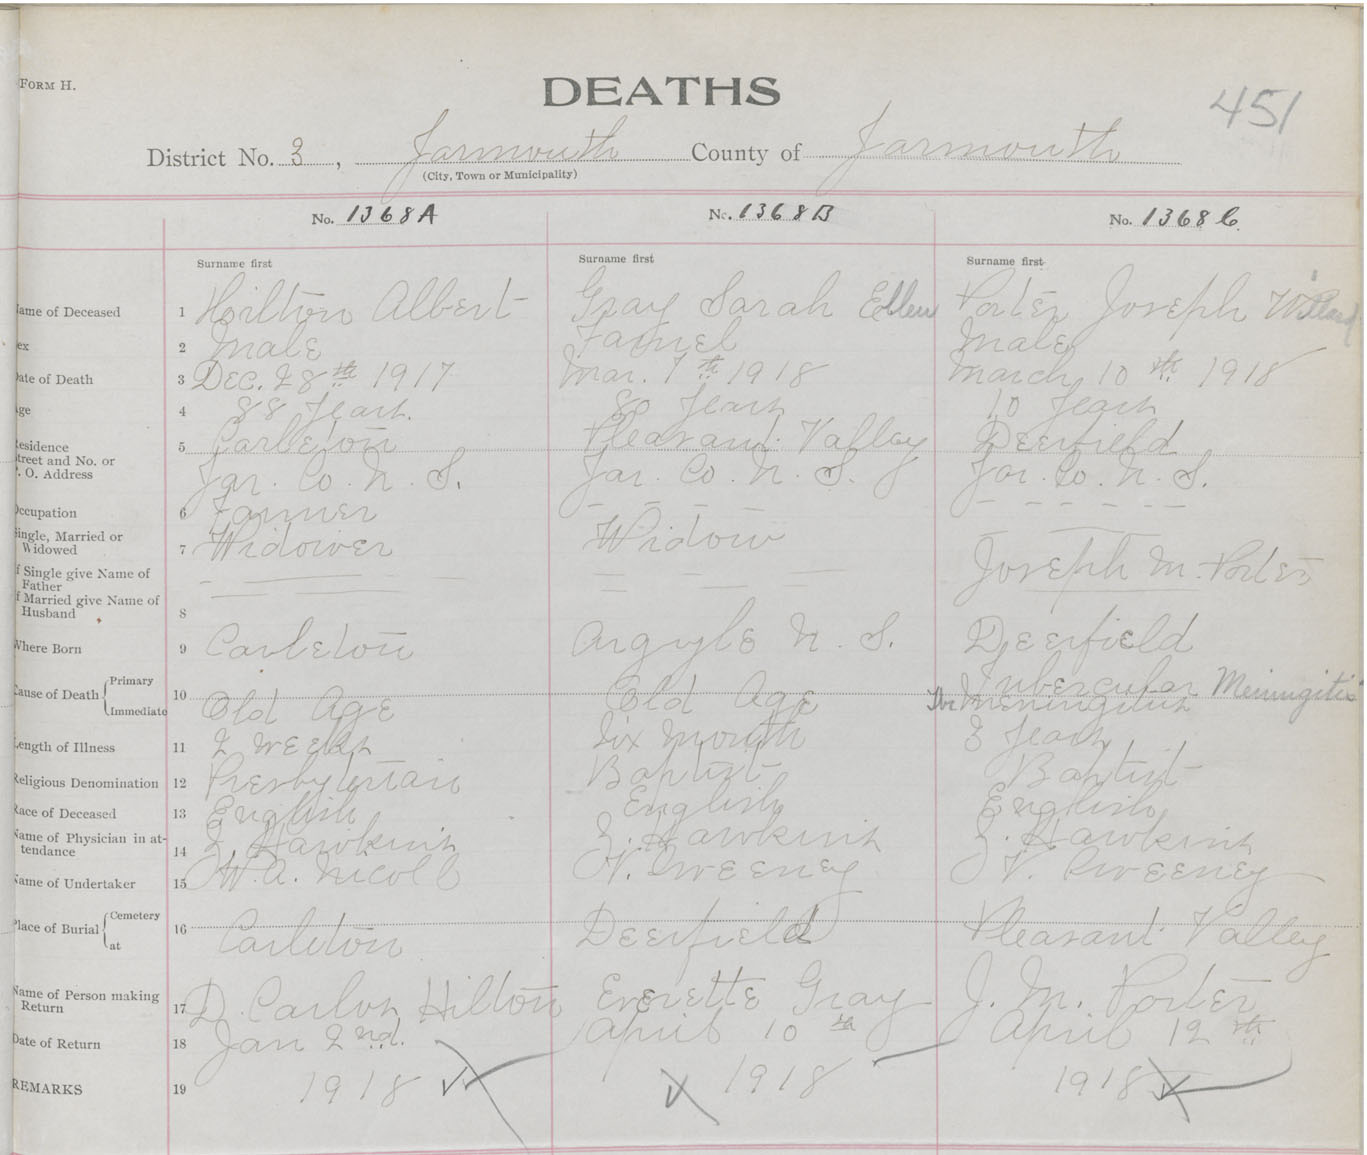 FORM H.
DEATHS
451
District No. 3, Yarmouth County of Yarmouth
(City, Town or Municipality)
No. 1368A No. 1368B No. 1368C
Surname first Surname first Surname first
Name of Deceased 1 Hilton Albert Gray Sarah Ellen Porter Joseph Willard
Sex 2 Male Famel Male
Date of Death 3 Dec. 28th 1917 Mar. 7th 1918 March 10th 1918
Age 4 88 Years. 80 Years 10 Years
Residence 5 Carleton Pleasant Valley Deerfield
Street and No. or
P. O. Address Yar. Co. N. S. Yar. Co. N. S. Yar. Co. N. S.
Occupation 6 Farmer - - - - - - - -
Single, Married or
Widowed 7 Widower Widow
If Single give Name of
Father Joseph M. Porter
If Married give Name of
Husband 8
Where Born 9 Carleton Argyle N. S. Deerfield
Cause of Death { Primary Tubercular Meningitis
10 Immediate Old Age Old Age Meningitis
Length of Illness 11 2 Weeks Six Month 3 Years
Religious Denomination 12 Presbyterian Baptist Baptist
Race of Deceased 13 English English English
Name of Physician in at-
tendance 14 Z. Hawkins Z. Hawkins Z. Hawkins
Name of Undertaker 15 W. A. Nicoll V. Sweeney V. Sweeney
Place of Burial { Cemetery
16 at Carleton Deerfield Pleasant Valley
Name of Person making
Return 17 D. Carlos Hilton Everette Gray J. M. Porter
Date of Return 18 Jan 2nd. April 10th April 12th
REMARKS 19 1918 1918 1918